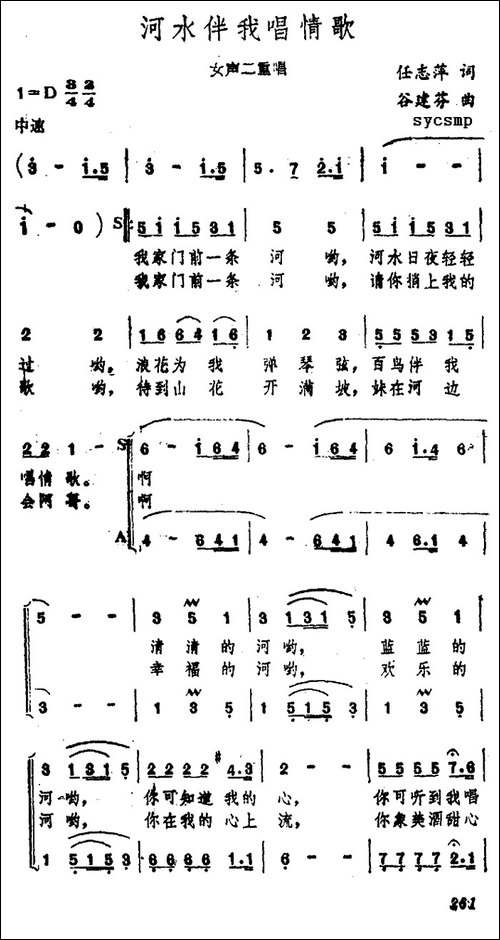 河水伴我唱情歌
女声二重唱
1=D 3/4 2/4
任志萍 词
中速
谷建芬 曲
sycsmp
(3 - i.5 | 3 - i.5 | 5. 7 2.i | i -
i - 0) S 5 i i 5 3 1 5 5 | 5 i i 5 3 1
我家门前一条 河 哟, 河水日夜轻轻
我家门前一条 河 哟, 请你捎上我的
2 2 | 1 6 6 4 1 6 | 1 2 3 | 5 5 5 3 1 5
过 哟。浪花为 我 弹 琴弦, 百鸟伴 我
歌 哟, 待到山 花 开 满 坡, 妹在河 边
2 2 1 - S 6 - i 6 4 | 6 - i 6 4 | 6 i.4 6
唱情 歌。 啊
会阿 哥。 啊
A 4 - 6 4 1 | 4 - 6 4 1 | 4 6.1 4
5 - - | 3 5 1 | 3 1 3 1 5 | 3 5 1
清 清 的 河 哟, 蓝 蓝 的
幸 福 的 河 哟, 欢 乐 的
3 - - | 1 3 5 | 1 5 1 5 3 | 1 3 5
3 1 3 1 5 | 2 2 2 2 #4.3 | 2 - - | 5 5 5 5 7.6
河 哟, 你可知道 我的 心, 你可听到我唱
河 哟, 你在我的 心上 流, 你象美酒甜心
1 5 1 5 3 | 6 6 6 6 1.1 | 6 - - | 7 7 7 7 2.1
261